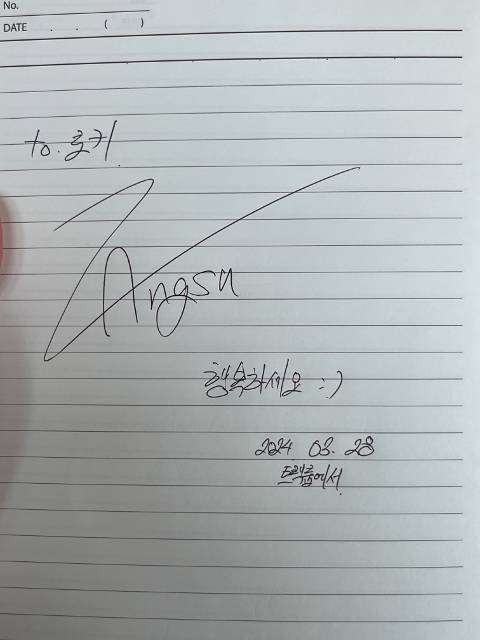 No.
DATE . . ( )
to. 로키
Angsu
행복하세요 :)
2024 03. 28
트래쉬에서